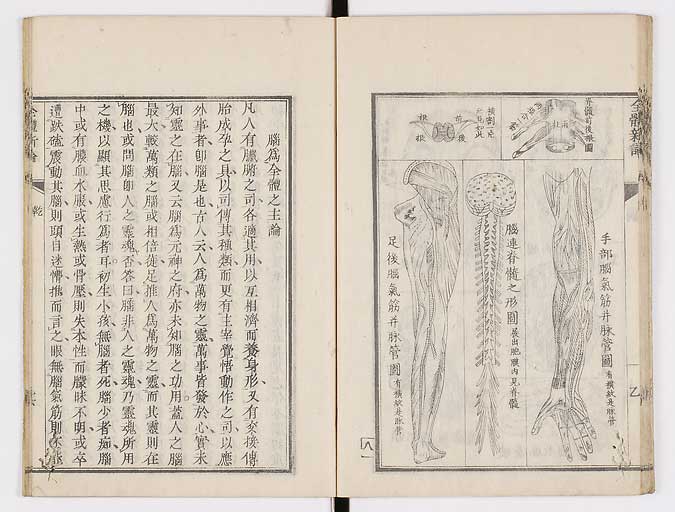 全體新論
脊髓前後眼圖
橫割一㔾
所見如此
前
後
根
根
手部腦氣筋并脉管圖
有橫紋是脉管
腦連脊髓之形圖
展出胞膜內見脊髓
足後腦氣筋并脉管圖
有橫紋是脉管
乙
八一
腦爲全體之主論
凡人有臟腑之司各適其用以互相濟而養身形又有交接傳
胎成孕之具以司傳其種類而更有主宰覺悟動作之司以應
外事者卽腦是也古人云人爲萬物之靈萬事皆發於心實未
知靈之在腦又云腦爲元神之府亦未知腦之功用蓋人之腦
最大較萬類之腦或相倍蓰足推人爲萬物之靈而其靈則在
腦也或問腦卽人之靈魂否答曰腦非人之靈魂乃靈魂所用
之機以顯其思慮行爲者耳初生小孩無腦者死腦少者痴腦
中或有膿血水脹或生熱或骨壓則失本性而矇昧不明或卒
遭跌磕震動其腦則頭目迷懵推而言之眼無腦氣筋則不能
全體新論
乾